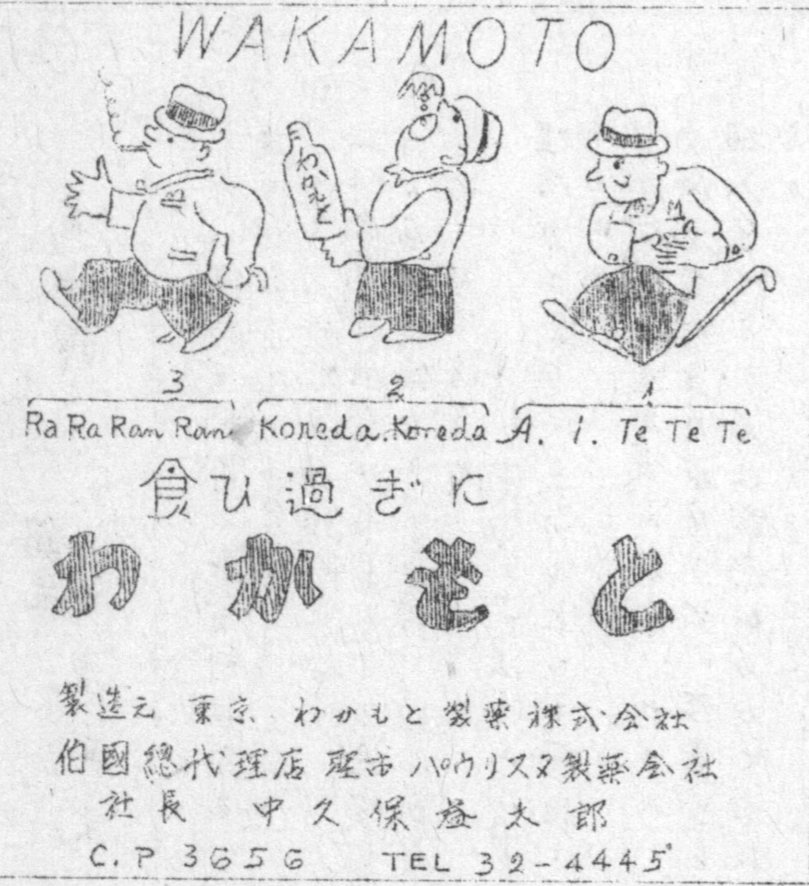 WAKAMOTO
わかもと
3 2 1
Ra Ra Ran Ran Koreda.Koreda A. i. Te Te Te
食ひ過ぎに
わかもと
製造元 東京 わかもと製薬株式会社
伯國總代理店 聖市 パウリスタ製薬会社
社長 中久保益太郎
C.P 3656 TEL 32-4445